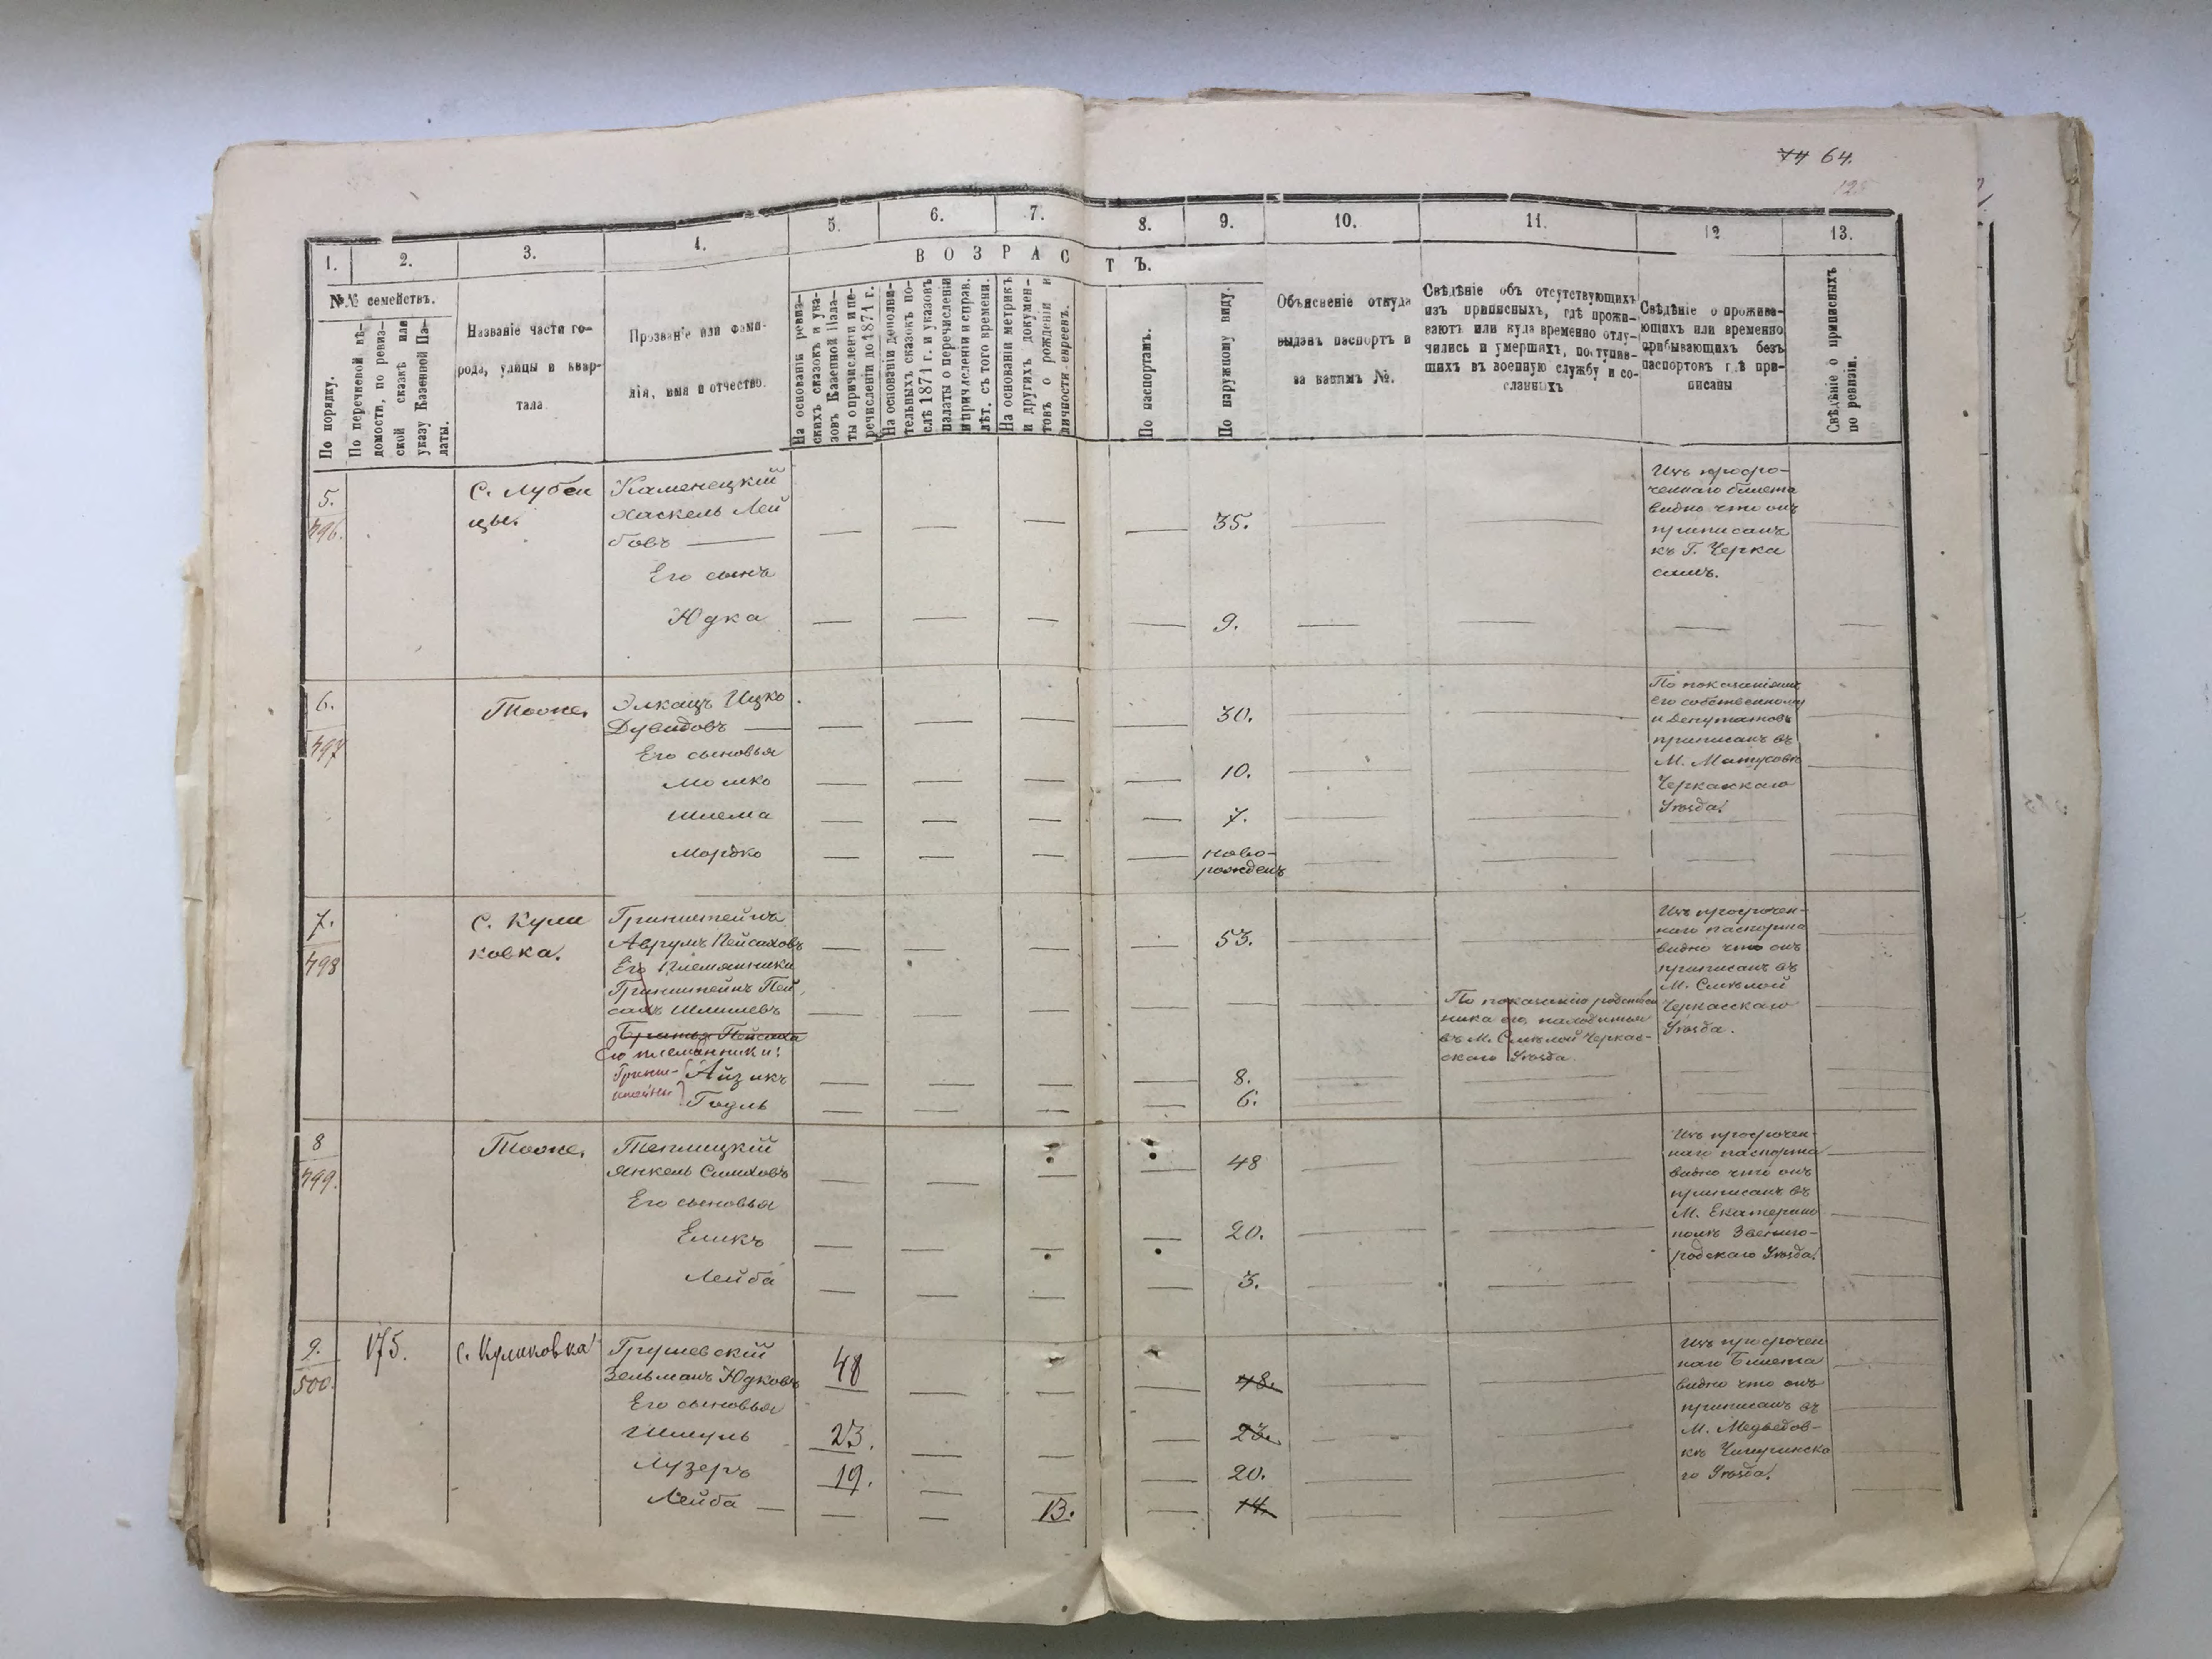 74 64.
1. 2. 3. 4. 5. 6. 7. 8. 9. 10. 11. 12 13.
В О З Р А С Т Ъ.
№№ семействъ.
По порядку.
По перечневой вѣ-
домости, по ревиз-
ской сказкѣ или
указу Казенной Па-
латы.
Названіе части го-
рода, улицы и квар-
тала
Прозваніе или фами-
лія, имя и отчество.
На основаніи ревиз-
скихъ сказокъ и ука-
зовъ Казенной Пала-
ты о причисленіи и пе-
речисленіи до 1871 г.
На основаніи дополни-
тельныхъ сказокъ по-
слѣ 1871 г. и указовъ
палаты о перечисленіи
и причисленіи и справ.
лѣт. съ того времени.
На основаніи метрикъ
и другихъ докумен-
товъ о рожденіи и
личности евреевъ.
По паспортамъ.
По наружному виду.
Объясненіе откуда
выданъ паспортъ и
за какимъ №.
Свѣдѣніе объ отсутствующихъ
изъ приписныхъ, гдѣ прожи-
ваютъ или куда временно отлу-
чились и умершихъ, поступив-
шихъ въ военную службу и со-
сланныхъ
Свѣдѣніе о прожива-
ющихъ или временно
прибывающихъ безъ
паспортовъ гдѣ при-
писаны
Свѣдѣніе о приписныхъ
по ревизіи.
5.
496.
С. Лубен
цы.
Каменецкій
Хаскель Лей
бовъ
35.
Его сынъ
Юдка
9.
Изъ просро-
ченнаго билета
видно что онъ
приписанъ
къ Г. Черка
самъ.
6.
497
Тоже.
Элкацъ Ицко
Дувидовъ
30.
Его сыновья
Мошко
10.
Шлема
7.
Мордко
ново-
рожденъ
По показаніямъ
его собственному
и Депутатовъ
приписанъ въ
М. Матусовѣ
Черкаскаго
Уѣзда.
7.
498
С. Кули
ковка.
Гринштейнъ
Аврумъ Пейсаховъ
53.
Его Племянники
Гринштейнъ Пей
сахъ Шлиёвъ
Братья Пейсаха
Его племянники:
Грин-
штейны
Айзикъ
8.
Годль
6.
По показанію родствен
ника его, находится
въ М. Смѣлой Черкас-
скаго Уѣзда
Изъ просрочен-
наго паспорта
видно что онъ
приписанъ въ
М. Смѣлой
Черкасскаго
Уѣзда.
8
499.
Тоже.
Теплицкій
Янкель Симховъ
48
Его сыновья
Еликъ
20.
Лейба
3.
Изъ просрочен-
наго паспорта
видно что онъ
приписанъ въ
М. Екатерино
полѣ Звениго-
родскаго Уѣзда.
9.
500.
175.
с. Куликовка
Грушевскій
Зельманъ Юдковъ
48
48.
Его сыновья
Шмуль
23.
23.
Лузеръ
19.
20.
Лейба
13.
14.
Изъ просрочен
наго Билета
видно что онъ
приписанъ въ
М. Медвѣдов-
кѣ Чигиринска
го Уѣзда.